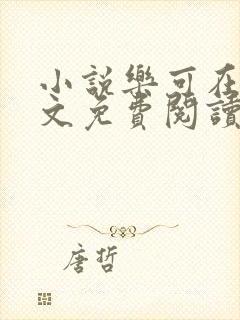 小說樂可在
文免費閱讀
唐哲